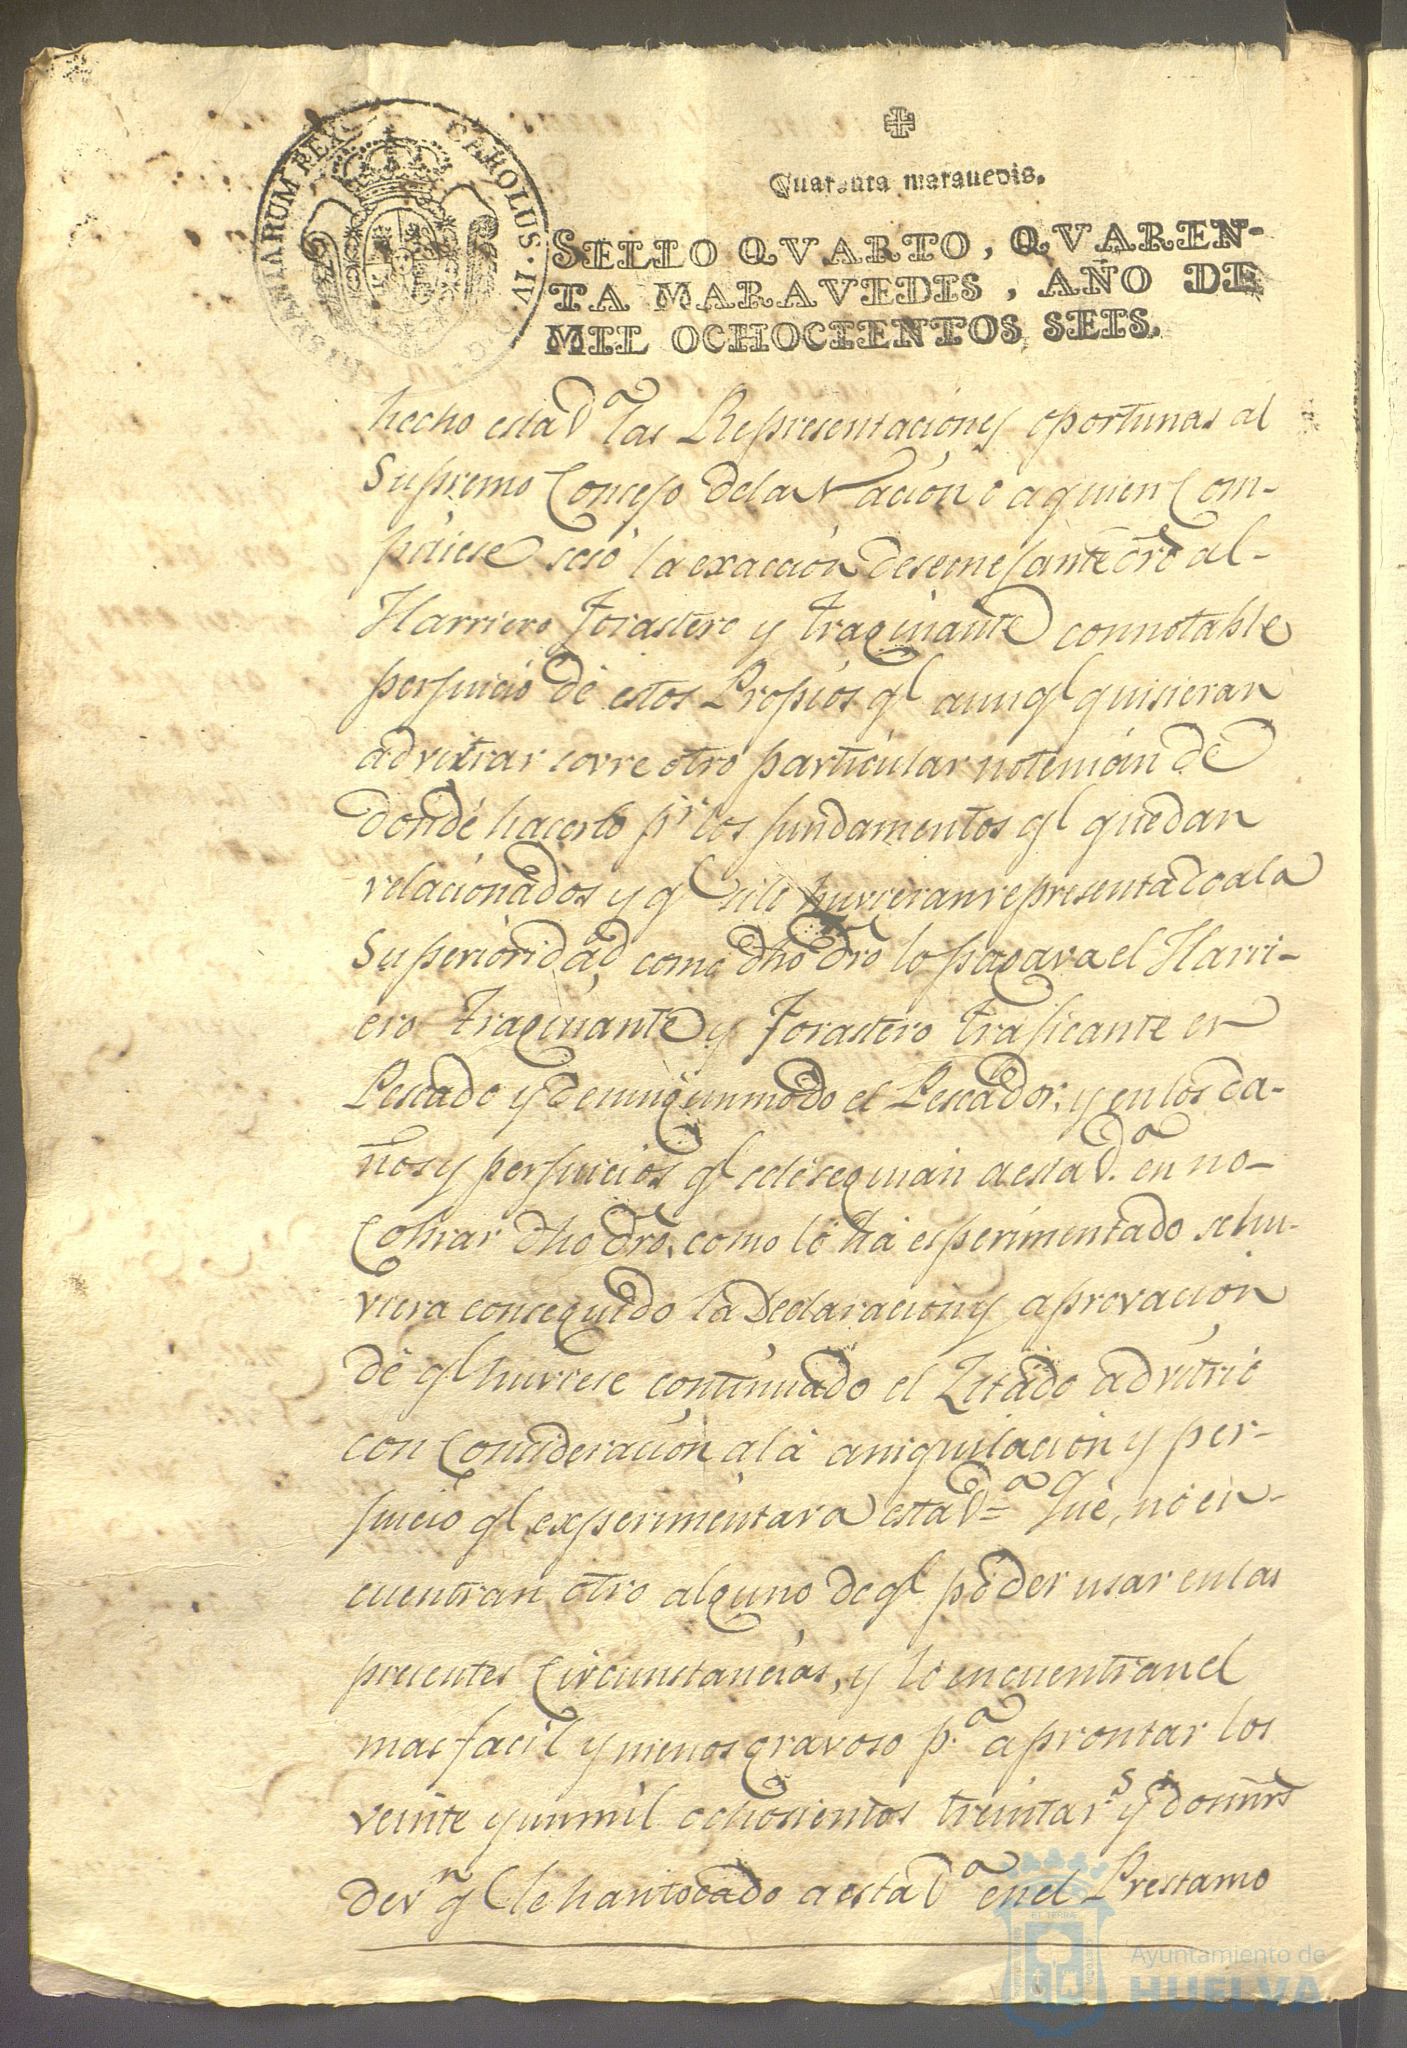 HISPANIARUM REX CAROLUS·IV·D·G·
Quarenta maravedis.
SELLO QVARTO, QVAREN-
TA MARAVEDIS, AÑO DE
MIL OCHOCIENTOS SEIS.
hecho esta Vª las Representaciones oportunas al
Supremo Concejo dela Nacion o a quien Com-
petiese sesó la exacción de semejante dro al
Harriero forastero y traginante con notable
perjuicio de estos Propios ql aun ql quisieran
advitrar sovre otro particular no tenian de
donde hacerlo pr los fundamentos ql quedan
relacionados y ql si le huvieran representado ala
Superioridad como dho dro lo pagava el Harri-
ero traginante y forastero traficante en
Pescado y de ningun modo el Pescador, y en los da-
ños y perjuicios ql se le seguian a esta Vª en no
Cobrar dho dro, como lo ha esperimentado se hu-
viera conseguido la Declaracion y aprovacion
de ql huviese continuado el Zitado advitrio
con Consideracion a la aniquilacion y per-
juicio ql experimentava esta Vª Que, no en-
cuentran otro alguno de ql poder usar en las
presentes Circunstancias, y lo encuentran el
mas facil y menos gravoso p.ª aprontar los
veinte y un mil ochosientos treinta rs y dos mrs
de vn ql le han tocado a esta Vª en el Prestamo
Ayuntamiento de
HUELVA